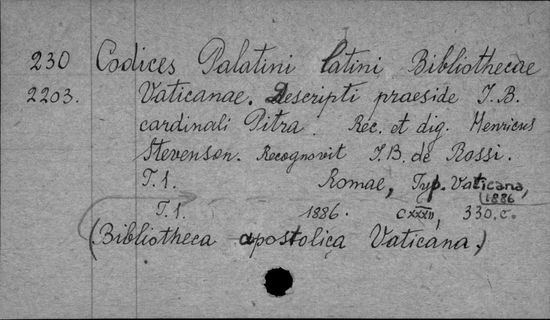 230 Codices Palatini latini Bibliothecae
2203. Vaticanae. Descripti praeside I.B.
cardinali Pitra. Rec. et dig. Henricus
Stevenson. Recognovit I.B. de Rossi.
T.1. Romae, Typ. Vaticana,
1886
T.1. 1886. CXXXII, 330.c.
(Bibliotheca apostolica Vaticana.)